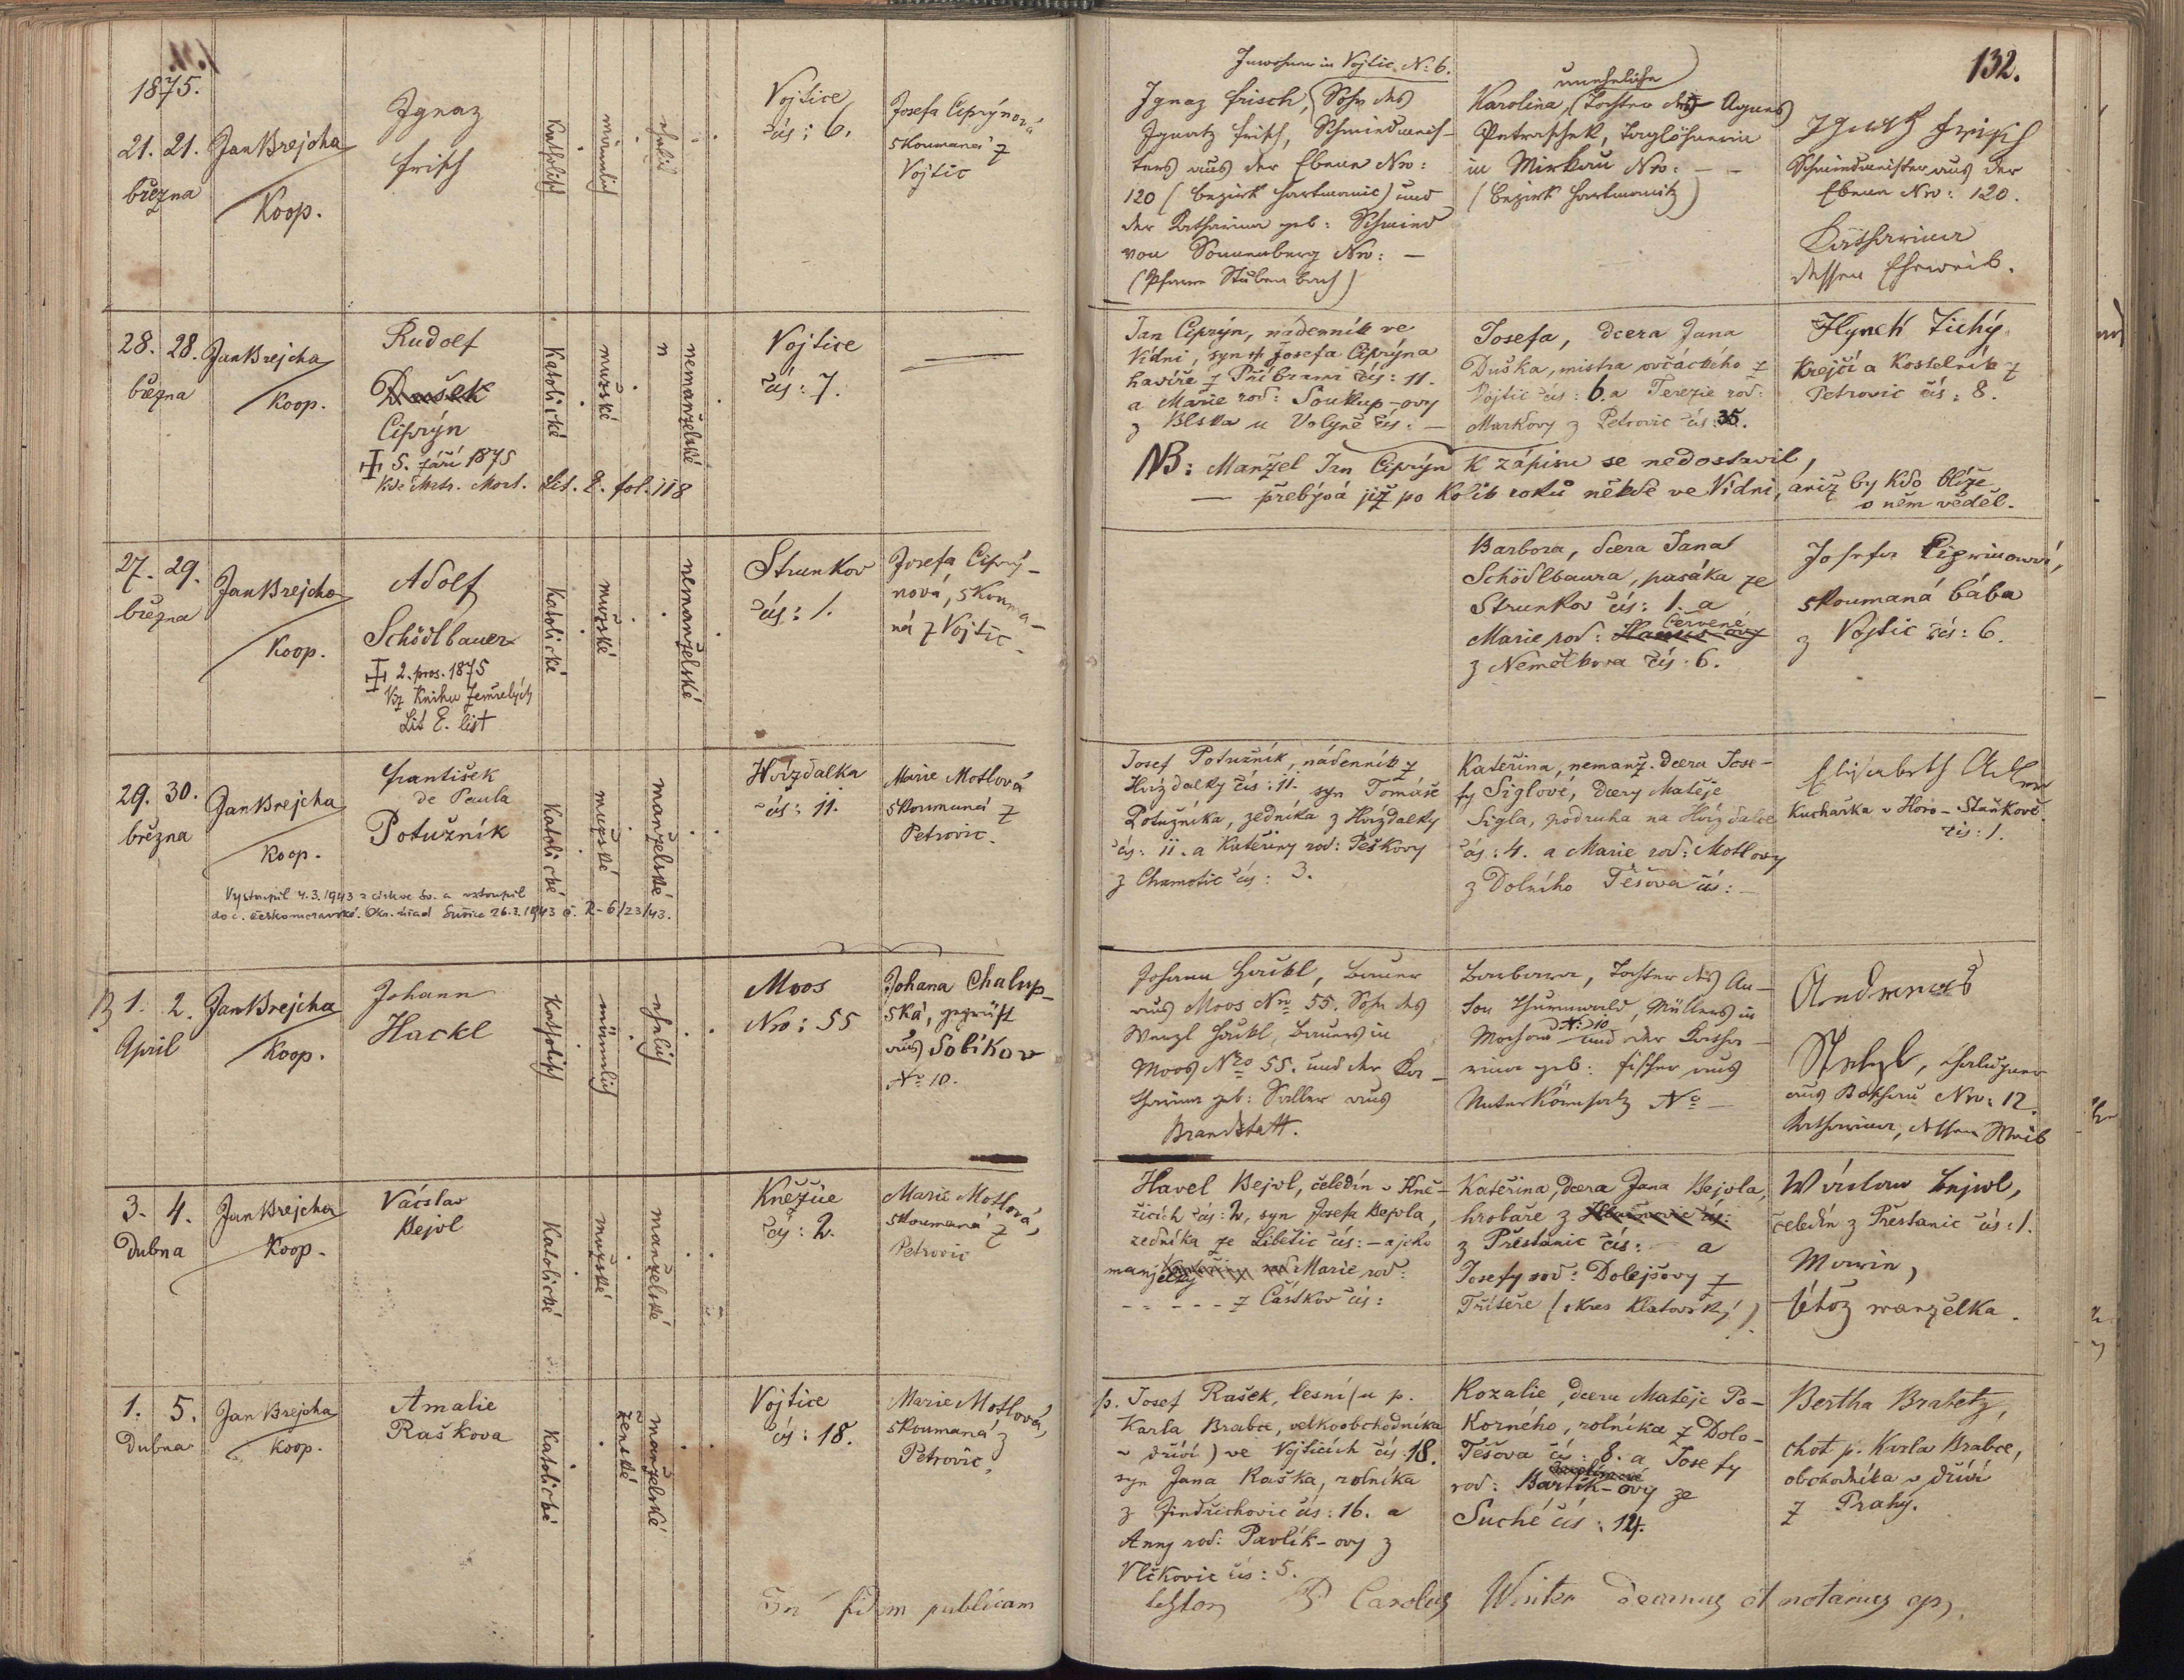 132.
1875.
21. 21.
března
Jan Brejcha
Koop.
Ignaz
Frisch
Katholisch
männlich
ehelich
Vojtice
čís: 6.
Josefa Ciprýnová
skoumaná z
Vojtic
Inwohner in Vojtic N: 6.
Ignaz Frisch, Sohn des
Ignatz Frisch, Schmiedmeis-
ters aus der Ebene Nro:
120 (Bezirk Hartmanic) und
der Katharina geb: Schmied
von Sonnenberg Nro: —
(Pfarre Stubenbach)
uneheliche
Karolina, (Tochter der Agnes
Petraschek, Taglöhnerin
in Mirkau Nro: — —
(Bezirk Hartmanitz)
Ignatz Frisch
Schmiedmeister aus der
Ebene Nro: 120.
Katharina
dessen Eheweib.
28. 28.
března
Jan Brejcha
Koop.
Rudolf
Dušek
Ciprýn
5. září 1875
Vide Matr. Mort. Lit. E. fol. 118
Katolické
mužské
n
nemanželské
Vojtice
čís: 7.
Jan Ciprýn, nádenník ve
Vídni, syn Josefa Ciprýna
havíře z Příbrami čís: 11.
a Marie rod: Soukup-ovy
z Blska u Volyně čís: —
Josefa, dcera Jana
Duška, mistra ovčáckého z
Vojtic čís: 6. a Terezie rod:
Markovy z Petrovic čís: 35.
Hynek Tichý,
Krejčí a Kostelník z
Petrovic čís: 8.
NB: Manžel Jan Ciprýn k zápisu se nedostavil,
— přebývá již po kolik roků někde ve Vídni, aniž by kdo blíže
o něm věděl.
27. 29.
března
Jan Brejcha
Koop.
Adolf
Schödlbauer
2. pros. 1875
Viz Knihu Zemřelých
Lit E. list
Katolické
mužské
nemanželské
Strunkov
čís: 1.
Josefa Ciprý-
nová, skouma-
ná z Vojtic.
Barbora, dcera Jana
Schödlbaura, pasáka ze
Strunkov čís: 1. a
Červené
Marie rod:
z Němčkova čís: 6.
Josefa Ciprinowá,
skoumaná bába
z Vojtic čís: 6.
29. 30.
března
Jan Brejcha
Koop.
František
de Paula
Potužník
Katolické
mužské
manželské
Hvízdalka
čís: 11.
Marie Motlová
skoumaná z
Petrovic.
Vystoupil 4.3.1943 z církve řv. a vstoupil
do c. českomoravské. Okr. úřad Sušice 26.3.1943 č. R-6/23/43.
Josef Potužník, nádenník z
Hvízdalky čís: 11. syn Tomáše
Potužníka, zedníka z Hvízdalky
čís: 11. a Kateřiny rod: Peškovy
z Chamotic čís: 3.
Kateřina, nemanž. dcera Jose-
fy Siglové, dcery Matěje
Sigla, podruha na Hvízdalce
čís: 4. a Marie rod: Motlovy
z Dolního Těšova čís: —
Elisabeth
Kuchařka v Horo-Staňkově
čís: 1.
1. 2.
April
Jan Brejcha
Koop.
Johann
Hackl
Katholisch
männlich
ehelich
Moos
Nro: 55
Johana Chalup-
ská, geprüft
aus Sobikov
No 10.
Johann Hackl, Bauer
aus Moos No 55. Sohn des
Wenzl Hackl, Bauers in
Moos Nro 55. und der Ka-
tharina geb: Saller aus
Brandstatt.
Barbara, Tochter des An-
ton Thurnwald, Müllers in
N: 10
Mochau und der Katha-
rina geb: Fischer aus
Unterkörnsalz No —
Andreas
Stelzl, Chalupner
aus Nro: 12.
Katharina, dessen Weib
3. 4.
Dubna
Jan Brejcha
Koop.
Václav
Bejvl
Katolické
mužské
manželské
Kněžice
čís: 2.
Marie Motlová,
skoumaná z
Petrovic
Havel Bejvl, čeledín v Kně-
žicích čís: 2, syn Josefa Bejvla,
zedníka ze Libětic čís: — a jeho
manželky Marie rod:
- - - - - z Častkov čís:
Kateřina, dcera Jana Bejvla,
hrobaře z
z Přestanic čís: a
Josefy rod: Dolejšovy z
Trsteře (okres Klatovský).
Wáclaw Bejwl,
čeledín z Přestanic čís: 1.
Marie,
tétož manželka.
1. 5.
Dubna
Jan Brejcha
Koop.
Amalie
Raškova
Katolické
ženské
manželské
Vojtice
čís: 18.
Marie Motlová,
skoumaná z
Petrovic,
p. Josef Rašek, lesní (u p.
Karla Brabce, velkoobchodníka
v dříví) ve Vojticích čís: 18.
syn Jana Raška, rolníka
z Jindřichovic čís: 16. a
Anny rod: Pavlík-ovy z
Vlčkovic čís: 5.
Rozalie, dcera Matěje Po-
korného, rolníka z Dolo-
Těšova čís: 8. a Josefy
rod: Bartík-ovy ze
Suché čís: 14.
Bertha Brabetz,
choť p. Karla Brabce,
obchodníka v dříví
z Prahy.
In fidem publicam
testor P. Carolus Winter Decanus et notarius ap.